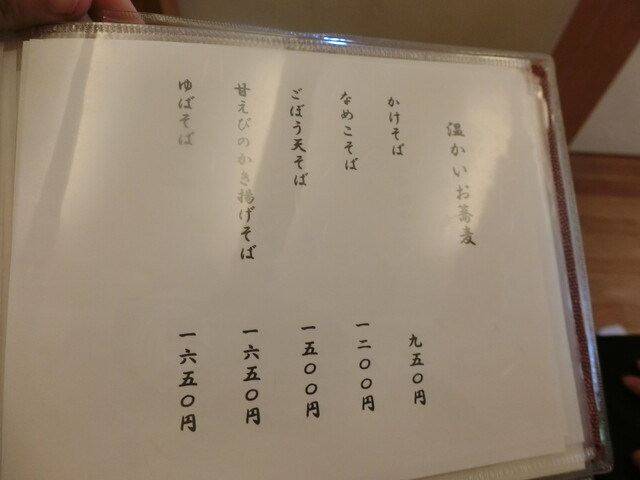 温かいお蕎麦
かけそば 九五〇円
なめこそば 一二〇〇円
ごぼう天そば 一五〇〇円
甘えびのかき揚げそば 一六五〇円
ゆばそば 一六五〇円